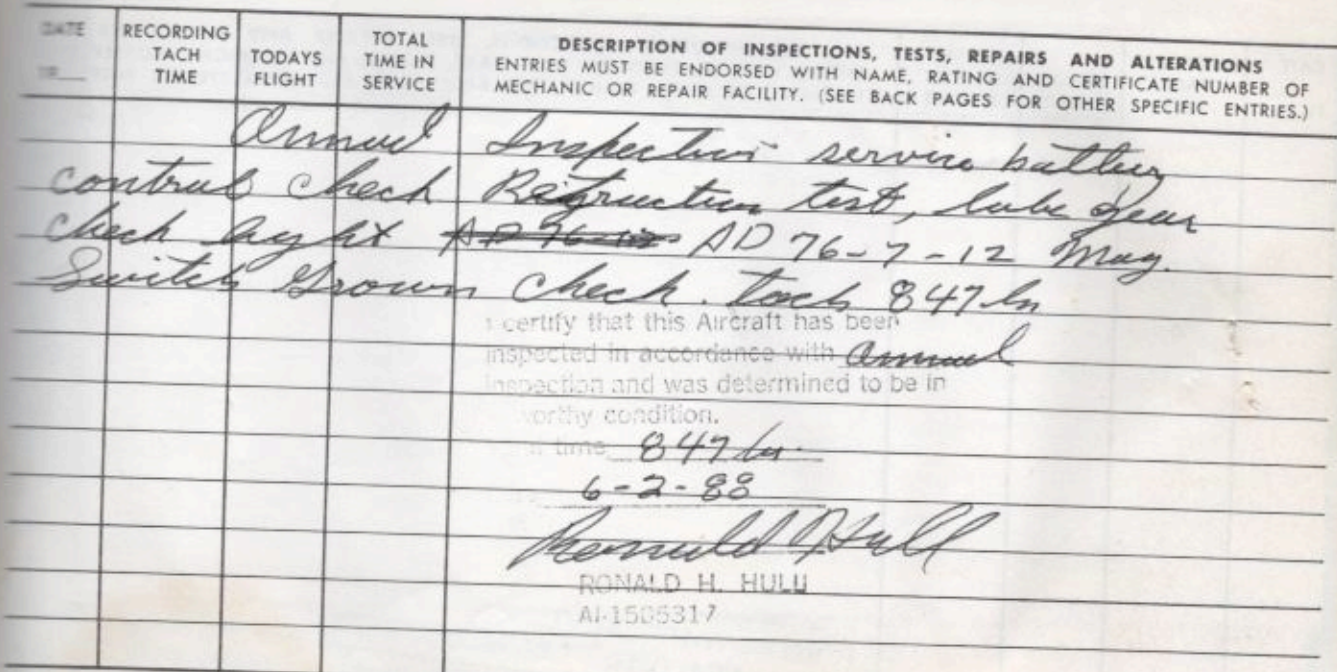 DATE
19
RECORDING TACH TIME
TODAYS FLIGHT
TOTAL TIME IN SERVICE
DESCRIPTION OF INSPECTIONS, TESTS, REPAIRS AND ALTERATIONS
ENTRIES MUST BE ENDORSED WITH NAME, RATING AND CERTIFICATE NUMBER OF
MECHANIC OR REPAIR FACILITY. (SEE BACK PAGES FOR OTHER SPECIFIC ENTRIES.)
Annual Inspection service battery
control check Retraction test, lube gear
check light AD 76-7-12 Mag.
Switch Groun Check. tach 847 hr
I certify that this Aircraft has been
inspected in accordance with annual
inspection and was determined to be in
worthy condition.
time 847 hr.
6-2-88
Ronald H Hull
RONALD H. HULL
AI-1505317